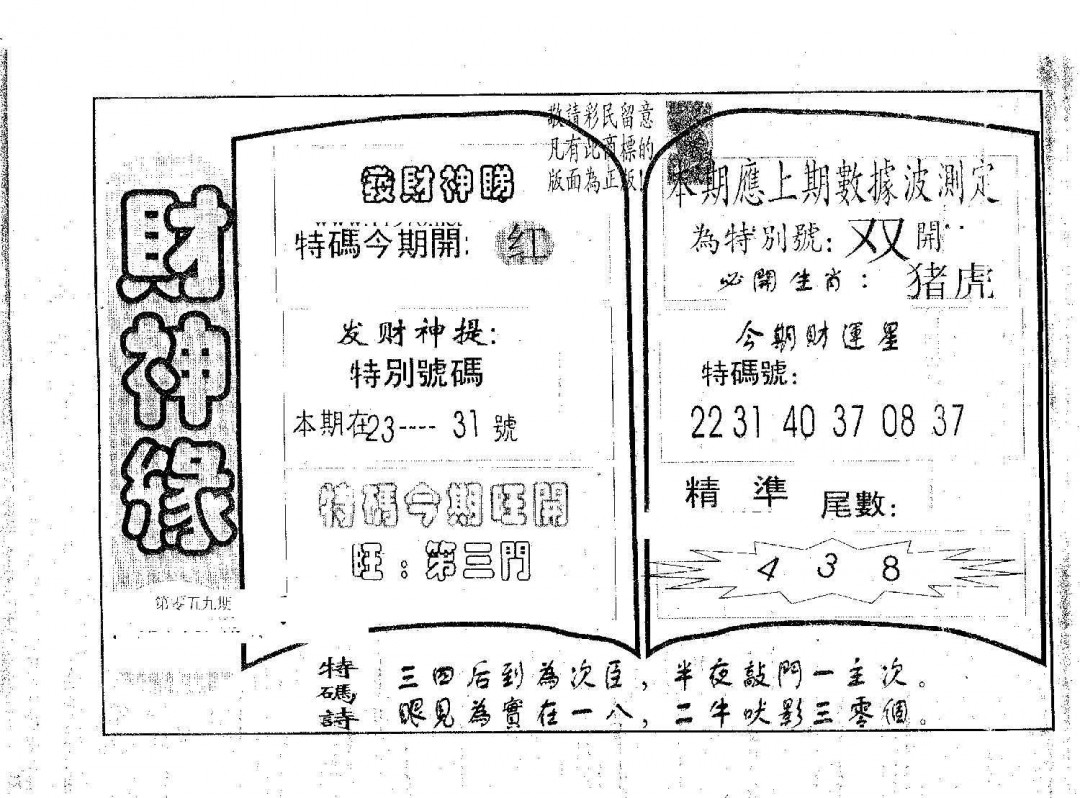 財神緣
第零五九期
敬請彩民留意
凡有此商標的
版面為正版!
發財神睇
特碼今期開: 红
发财神提:
特別號碼
本期在23---- 31 號
特碼今期旺開
旺:第三門
本期應上期數據波測定
為特別號: 双 開
必開生肖: 猪虎
今期財運星
特碼號:
22 31 40 37 08 37
精 準 尾數:
4 3 8
特碼詩
三四后到為次臣,半夜敲門一主次。
眼見為實在一八,二牛吠影三零個。